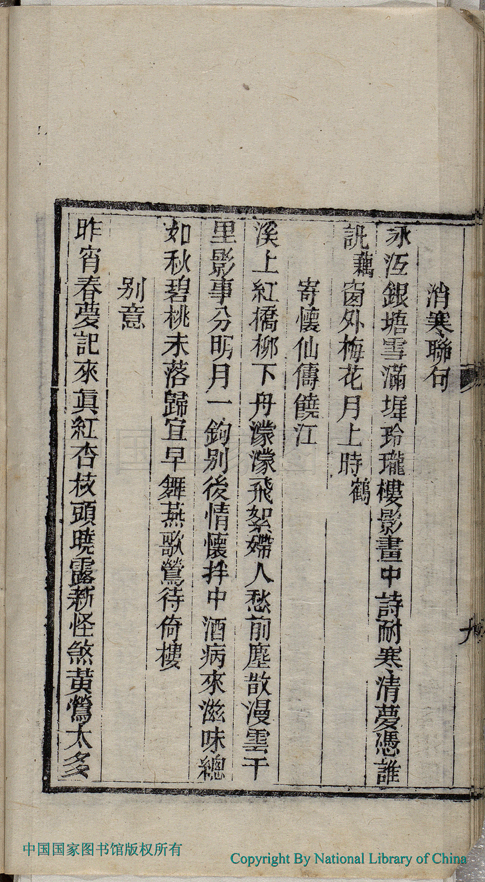 消寒聯句
冰沍銀塘雪滿墀玲瓏樓影畫中詩耐寒清夢憑誰
託藕窗外梅花月上時鶴
寄懷仙儔饒江
溪上紅橋柳下舟濛濛飛絮嬲人愁前塵散漫雲千
里影事分明月一鉤別後情懷拌中酒病來滋味總
如秋碧桃未落歸宜早舞燕歌鶯待倚樓
別意
昨宵春夢記來眞紅杏枝頭曉露新怪煞黃鶯太多
中国国家图书馆版权所有
Copyright By National Library of China